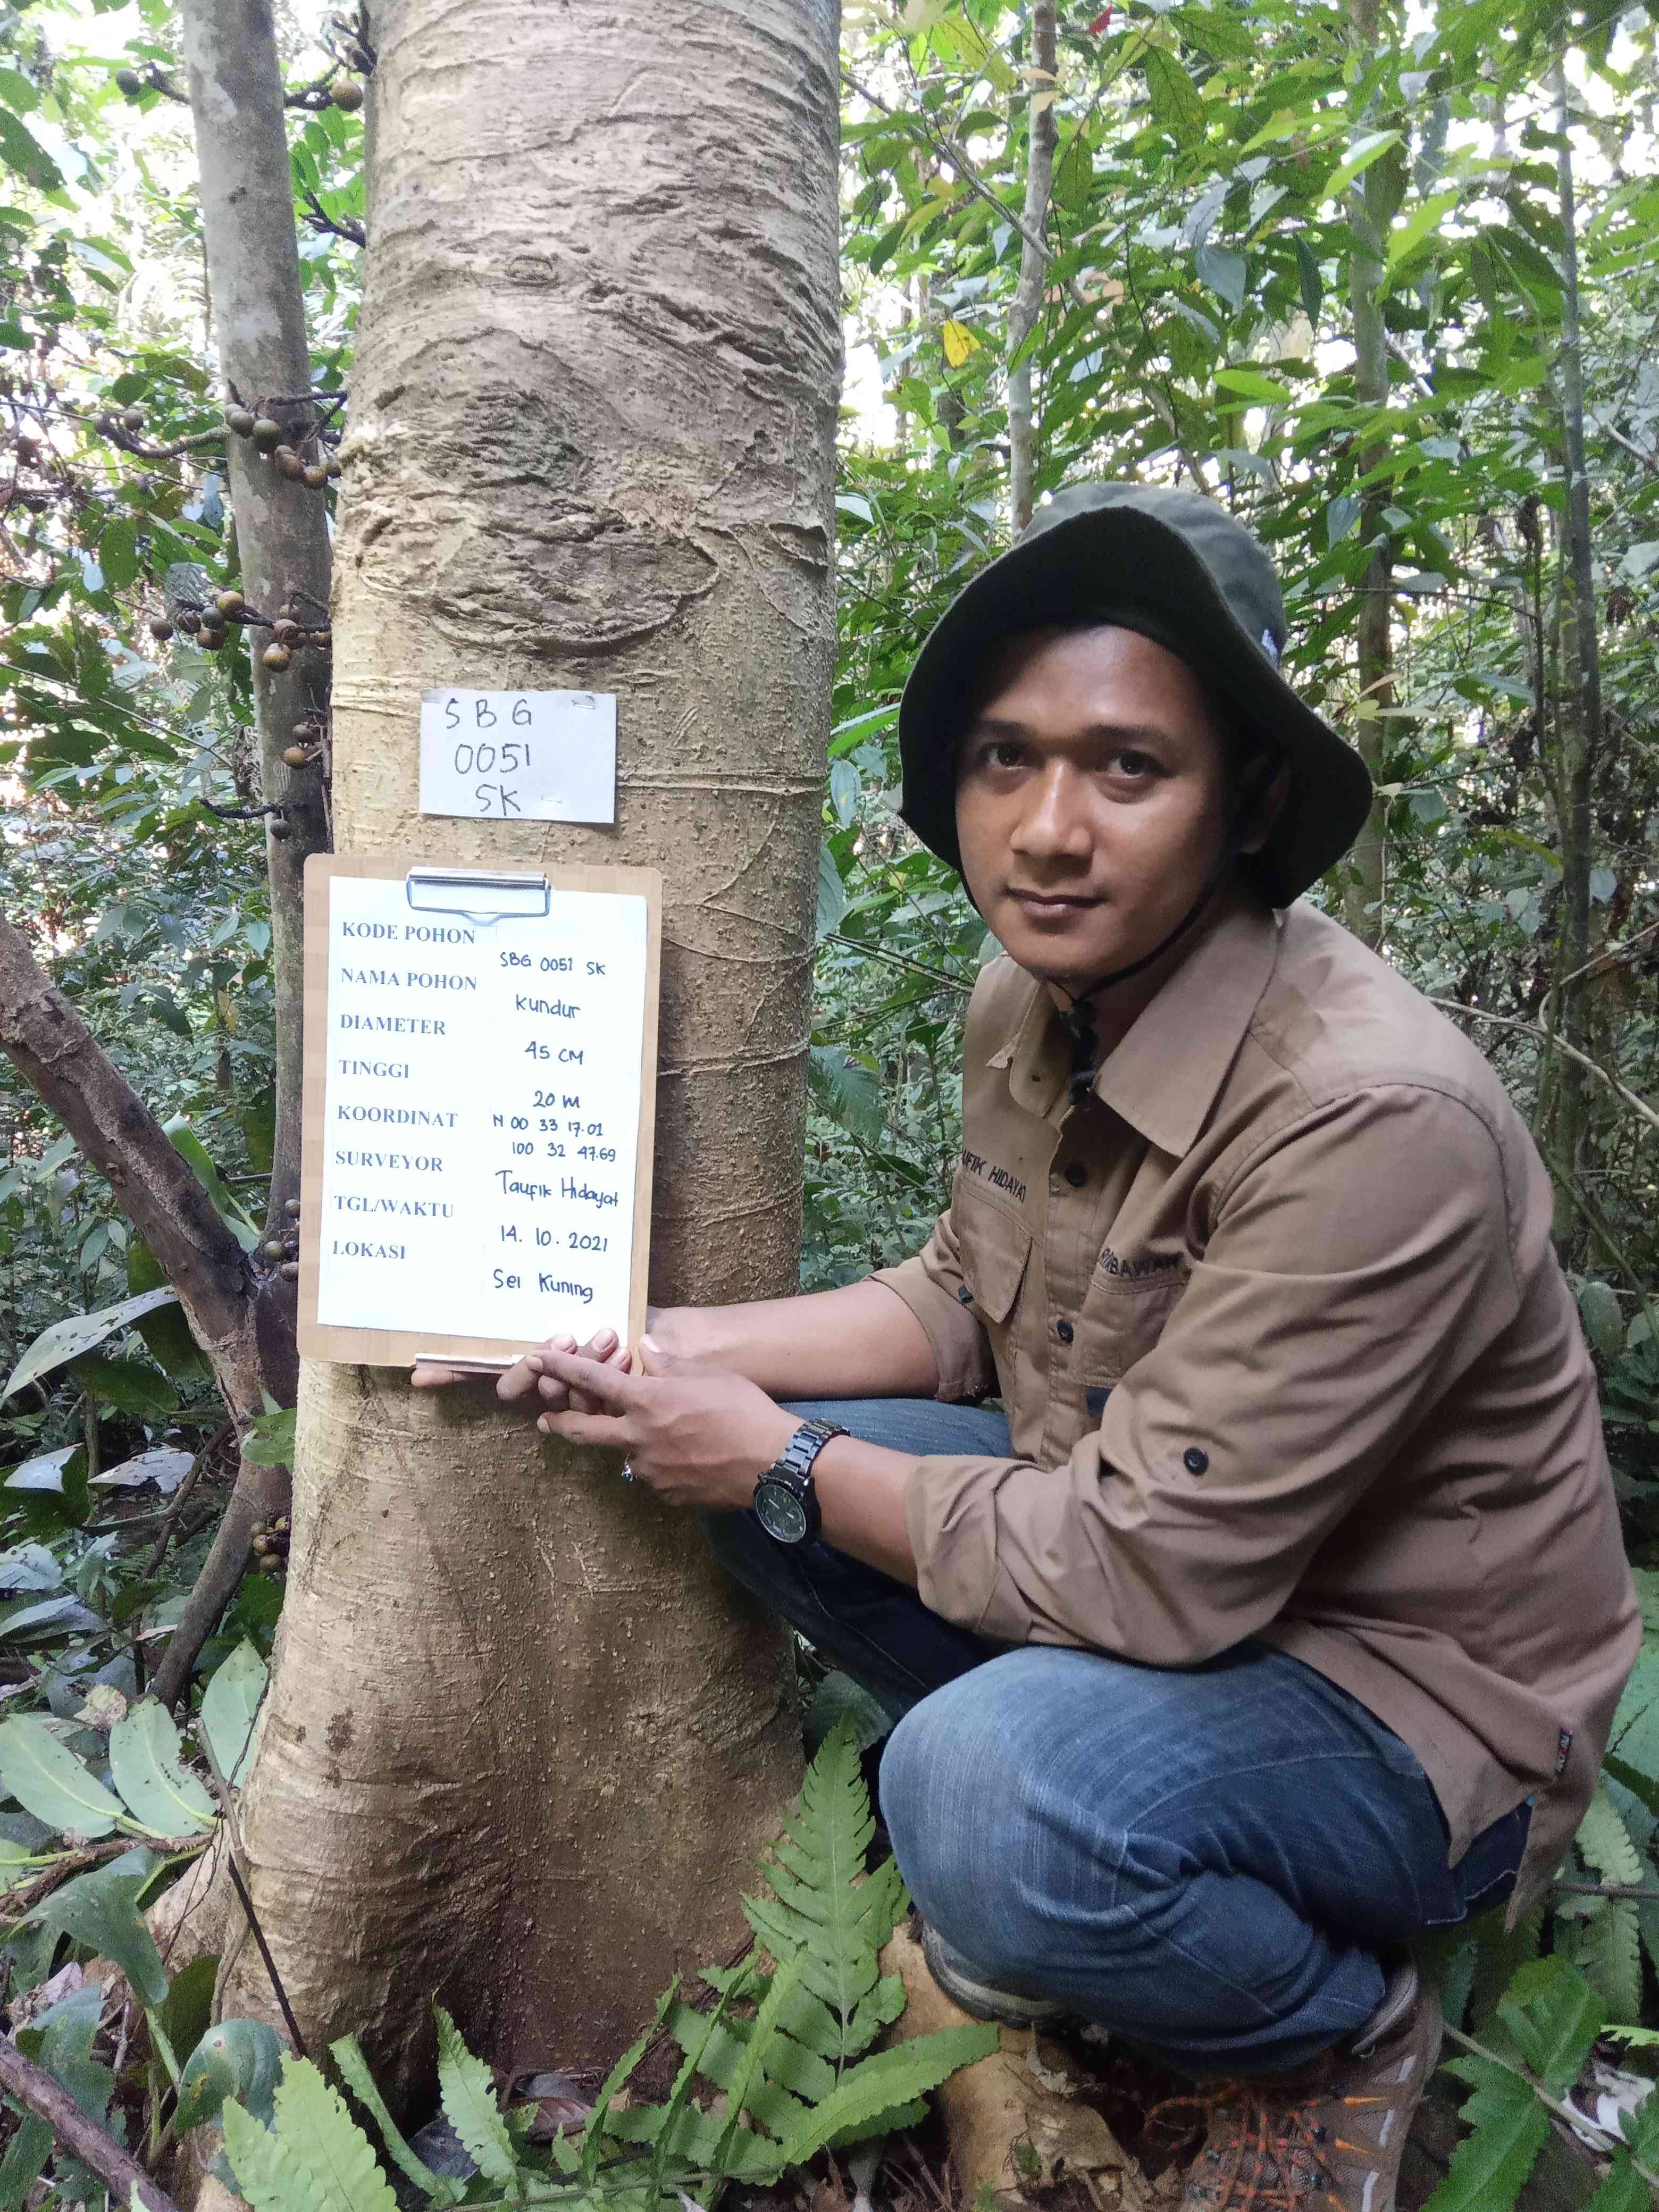 SBG
0051
SK
KODE POHON SBG 0051 SK
NAMA POHON Kundur
DIAMETER 45 CM
TINGGI 20 m
KOORDINAT N 00 33 17.01
100 32 47.69
SURVEYOR Taufik Hidayat
TGL/WAKTU 14.10.2021
LOKASI Sei Kuning
HIDAYAT